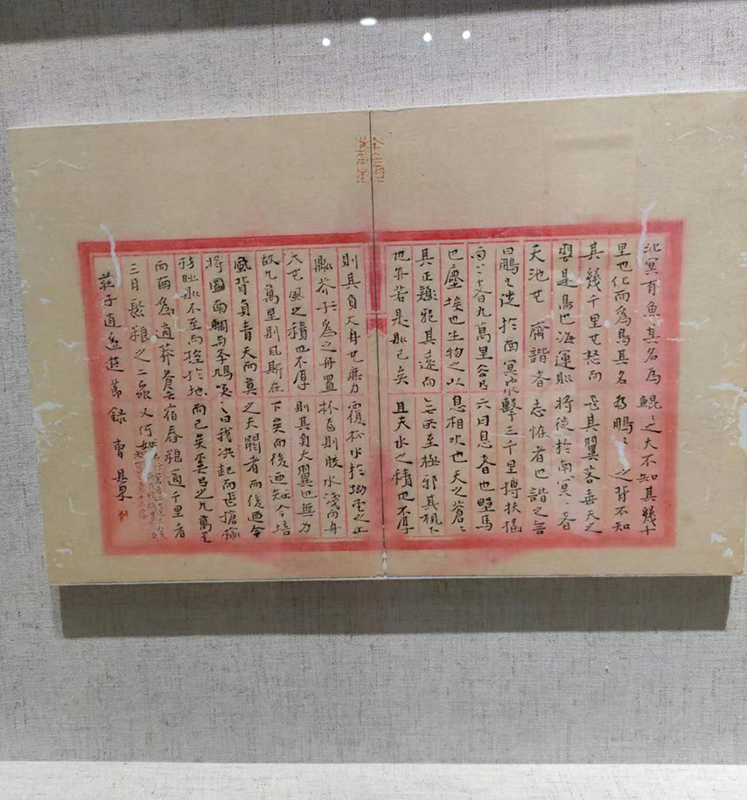 北冥有魚其名為鯤〻之大不知其幾千
里也化而為鳥其名為鵬〻之背不知
其幾千里也怒而飛其翼若垂天之
雲是鳥也海運則將徙於南冥〻者
天池也齊諧者志怪者也諧之言
曰鵬之徙於南冥水擊三千里摶扶搖
而上者九萬里去以六月息者也野馬
也塵埃也生物之以息相吹也天之蒼〻
其正色邪其遠而無所至極邪其視下
也亦若是則已矣且夫水之積也不厚
則其負大舟也無力覆杯水於坳堂之上
則芥為之舟置杯焉則膠水淺而舟
大也風之積也不厚則其負大翼也無力
故九萬里則風斯在下矣而後迺今培
風背負青天而莫之夭閼者而後迺今
將圖南蜩与學鳩笑之曰我決起而飛搶榆
枋時則不至而控於地而已矣奚以之九萬里
而南為適莽蒼者宿舂糧適千里者
三月聚糧之二蟲又何知
莊子逍遙遊節錄 曹